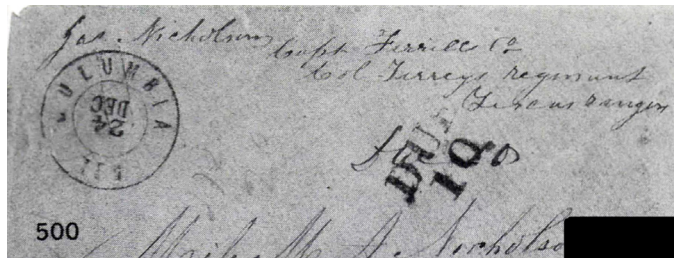 Jas. Nicholson
Capt Ferrills Co
Col Terrys regiment
Texas ranger
COLUMBIA
24
DEC
TEX
DUE
10
500
M. A. Nicholso